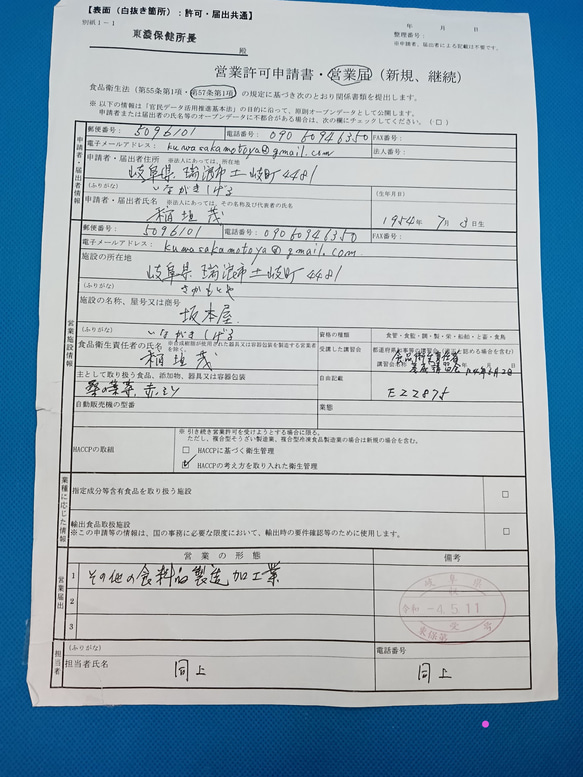 【表面（白抜き箇所）：許可・届出共通】
別紙１－１
東濃保健所長
殿
年 月 日
整理番号：
※申請者、届出者による記載は不要です。
営業許可申請書・営業届（新規、継続）
食品衛生法（第55条第1項・第57条第1項）の規定に基づき次のとおり関係書類を提出します。
※ 以下の情報は「官民データ活用推進基本法」の目的に沿って、原則オープンデータとして公開します。
申請者または届出者の氏名等のオープンデータに不都合がある場合は、次の欄にチェックしてください。（□）
申請者・届出者情報
郵便番号： 5096101 電話番号： 090 6094 6350 FAX番号：
電子メールアドレス： kuwasakamotoya@gmail.com 法人番号：
申請者・届出者住所 ※法人にあっては、所在地
岐阜県 瑞浪市 土岐町 4481
（ふりがな） いながき しげる （生年月日）
申請者・届出者氏名 ※法人にあっては、その名称及び代表者の氏名
稲垣 茂 1954年 7月 3日生
営業施設情報
郵便番号： 5096101 電話番号： 090 6094 6350 FAX番号：
電子メールアドレス： kuwasakamotoya@gmail.com
施設の所在地
岐阜県 瑞浪市 土岐町 4481
（ふりがな） さかもとや
施設の名称、屋号又は商号
坂本屋
（ふりがな） いながき しげる 資格の種類 食管・食監・調・製・栄・船舶・と畜・食鳥
食品衛生責任者の氏名 ※合成樹脂が使用された器具又は容器包装を製造する営業者を除く。 受講した講習会 都道府県知事等の講習会（適正と認める場合を含む）
稲垣 茂 講習会名称 年 月 日
主として取り扱う食品、添加物、器具又は容器包装 自由記載
桑の葉茶 E22875
自動販売機の型番 業態
HACCPの取組
※ 引き続き営業許可を受けようとする場合に限る。
ただし、複合型そうざい製造業、複合型冷凍食品製造業の場合は新規の場合を含む。
□ HACCPに基づく衛生管理
☑ HACCPの考え方を取り入れた衛生管理
業種に応じた情報
指定成分等含有食品を取り扱う施設 □
輸出食品取扱施設 □
※この申請等の情報は、国の事務に必要な限度において、輸出時の要件確認等のために使用します。
営業届出
営業の形態 備考
1 その他の食料品製造加工業
2
3
岐阜県
令和 -4.5.11
担当者
（ふりがな） 電話番号
担当者氏名 同上 同上